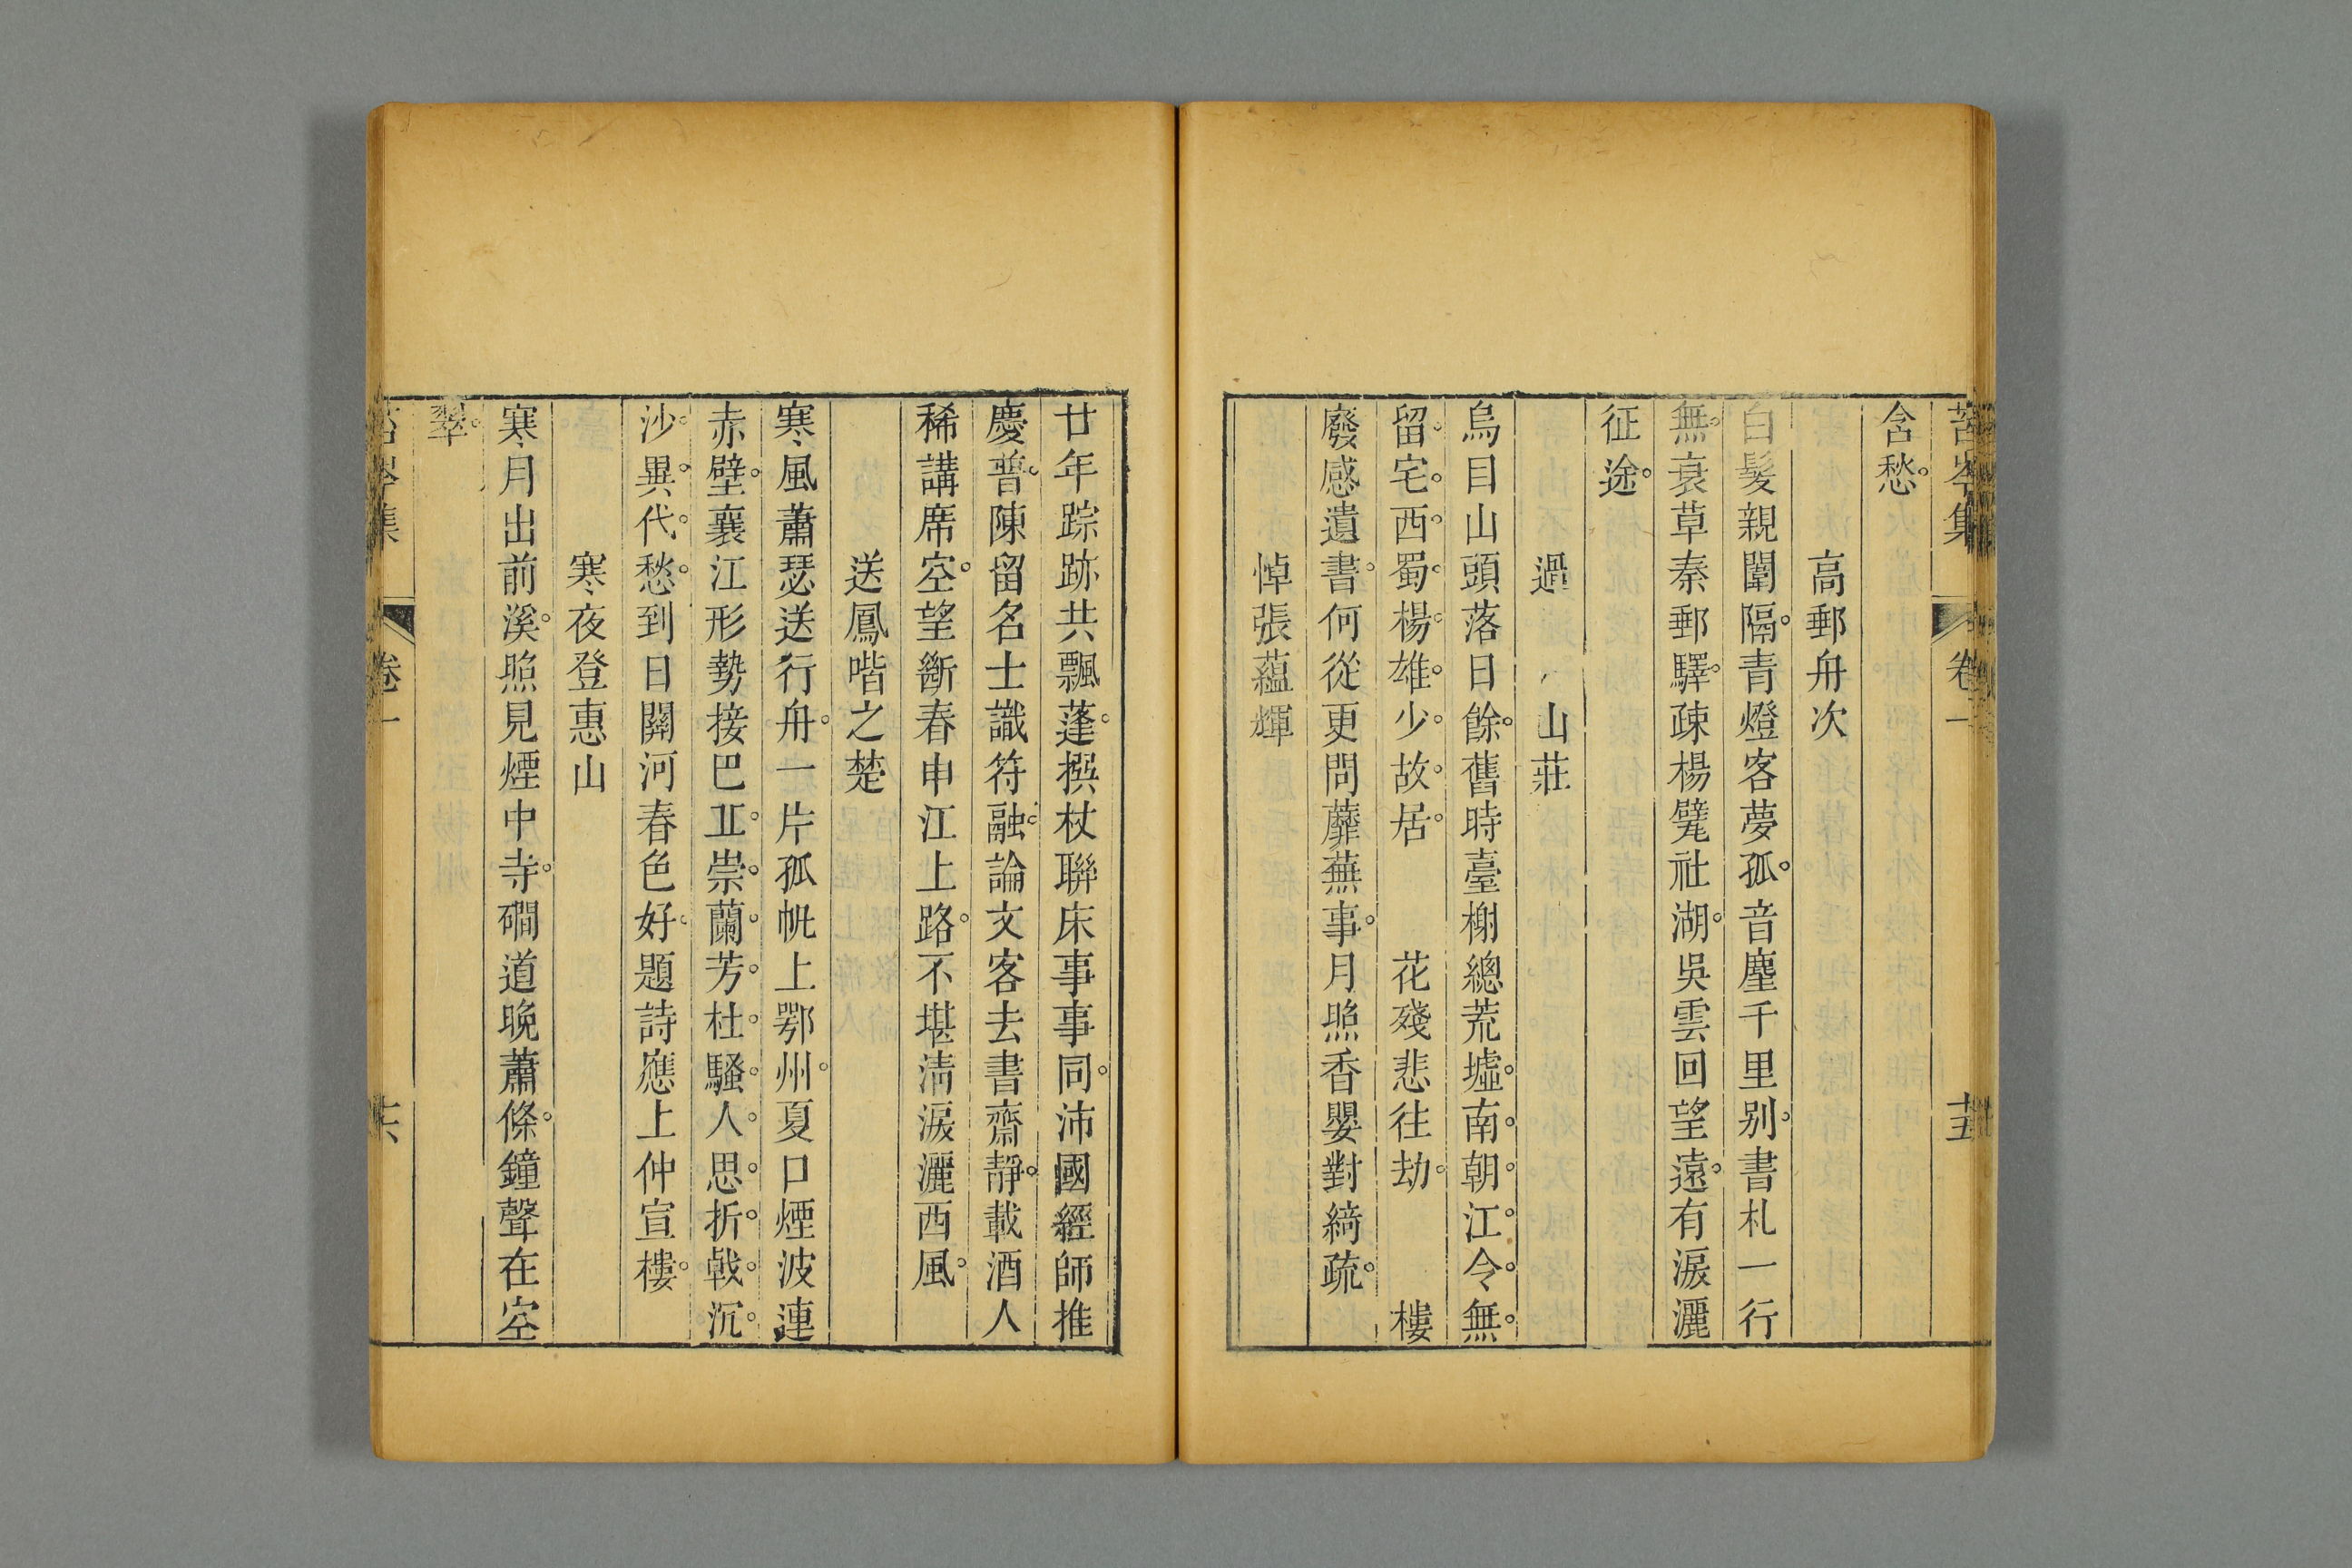 苔岑集 卷一 十五
含愁。
高郵舟次
白髮親闈隔。青燈客夢孤。音塵千里别。書札一行
無。衰草秦郵驛。疎楊甓社湖。吳雲回望遠。有淚灑
征途。
過 山莊
烏目山頭落日餘。舊時臺榭總荒墟。南。朝。江。令。無。
留。宅。西。蜀。楊。雄。少。故。居。 花殘悲往劫。 樓
廢感遺書。何從更問蘼蕪事。月照香嬰對綺疏。
悼張蘊輝
廿年踪跡共飄蓬。撰杖聯床事事同。沛國經師推
慶普。陳留名士識符融。論文客去書齋靜。載酒人
稀講席空。望斷春申江上路。不堪清淚灑西風。
送鳳喈之楚
寒風蕭瑟送行舟。一片孤帆上鄂州。夏口煙波連
赤壁。襄江形勢接巴丘。崇。蘭。芳。杜。騷。人。思。折。戟。沉。
沙。異。代。愁。到日關河春色好。題詩應上仲宣樓。
寒夜登惠山
寒月出前溪。照見煙中寺。磵道晚蕭條。鐘聲在空
翠。
苔岑集 卷一 十六